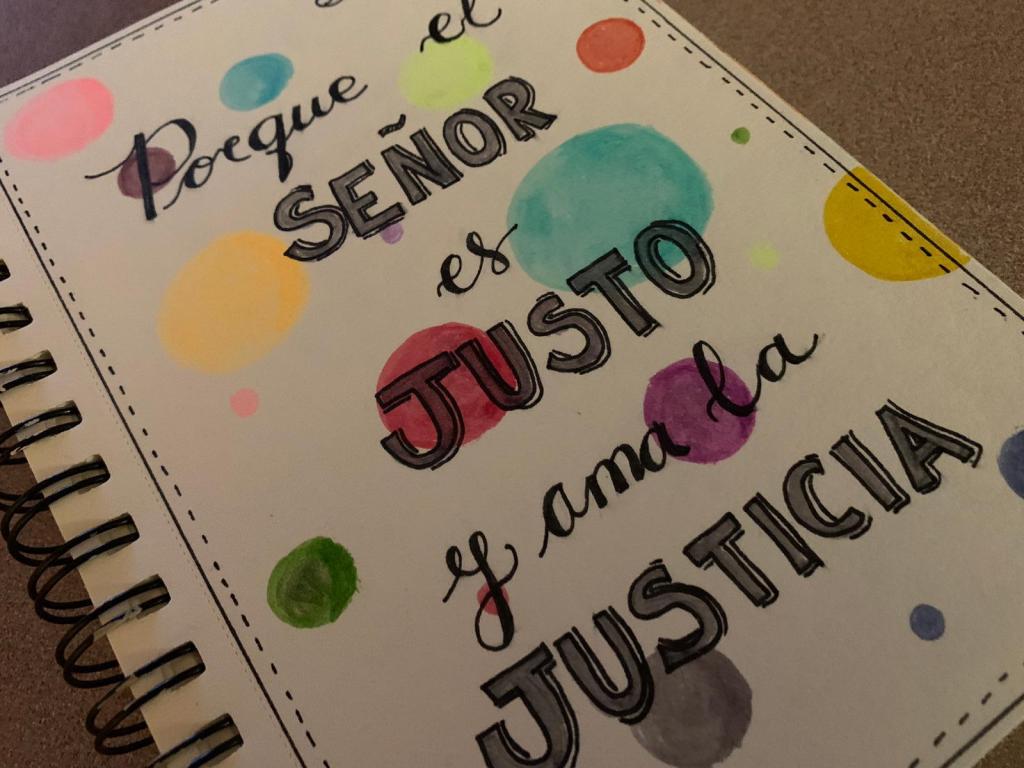 Porque el
SEÑOR
es
JUSTO
y ama la
JUSTICIA